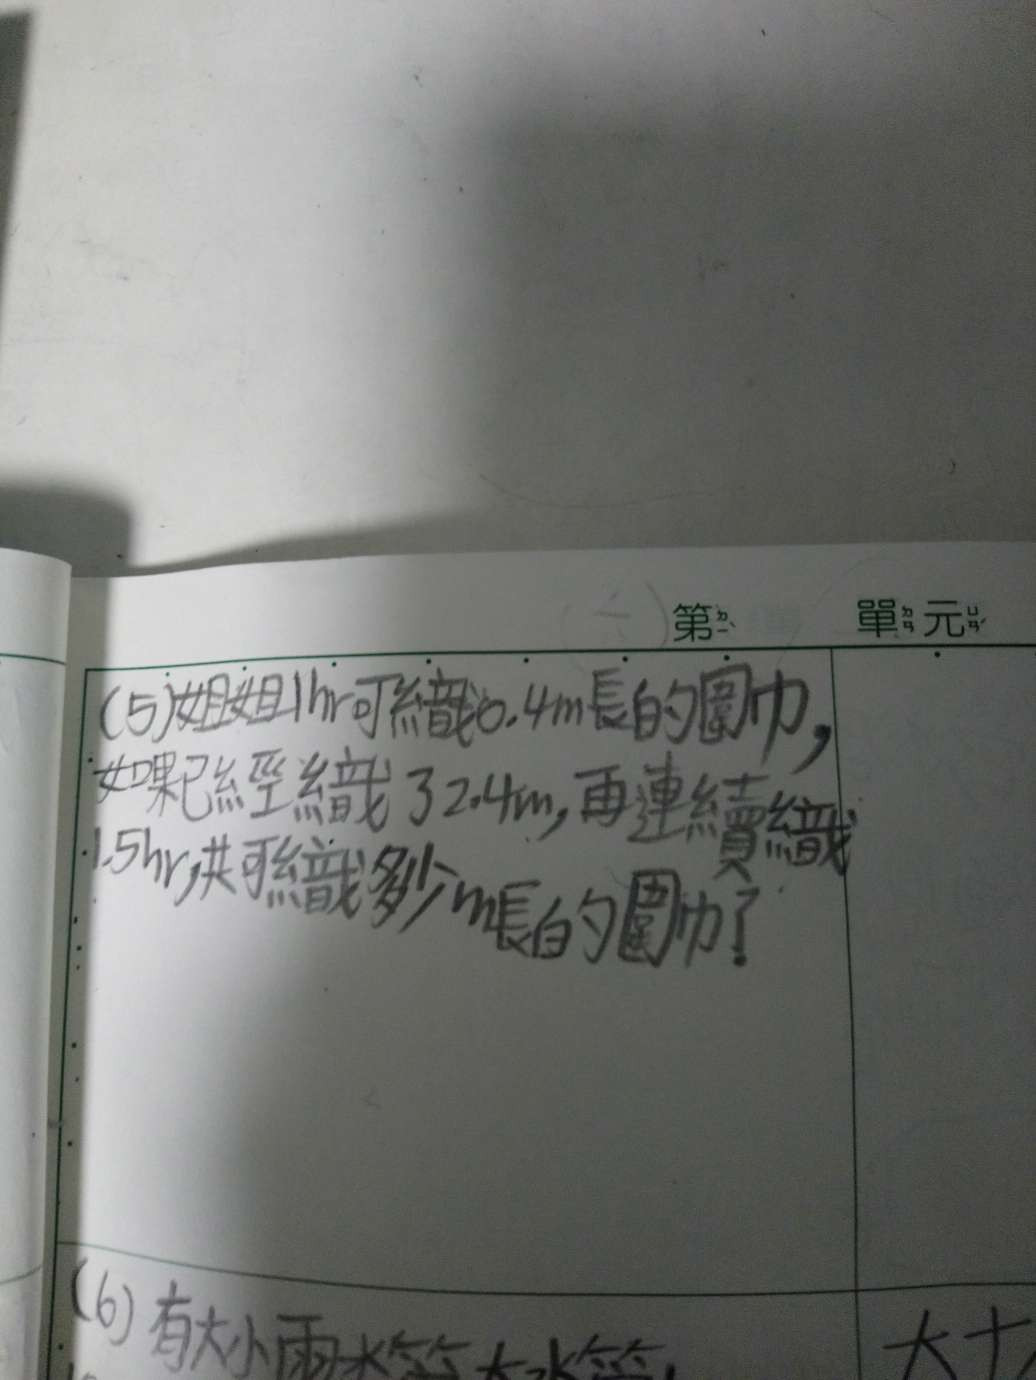 第 單元
(5)姐姐1hr可織0.4m長的圍巾,
如果已經織32.4m,再連續織
1.5hr,共可織多少m長的圍巾?
(6)有大小兩水管,大水管